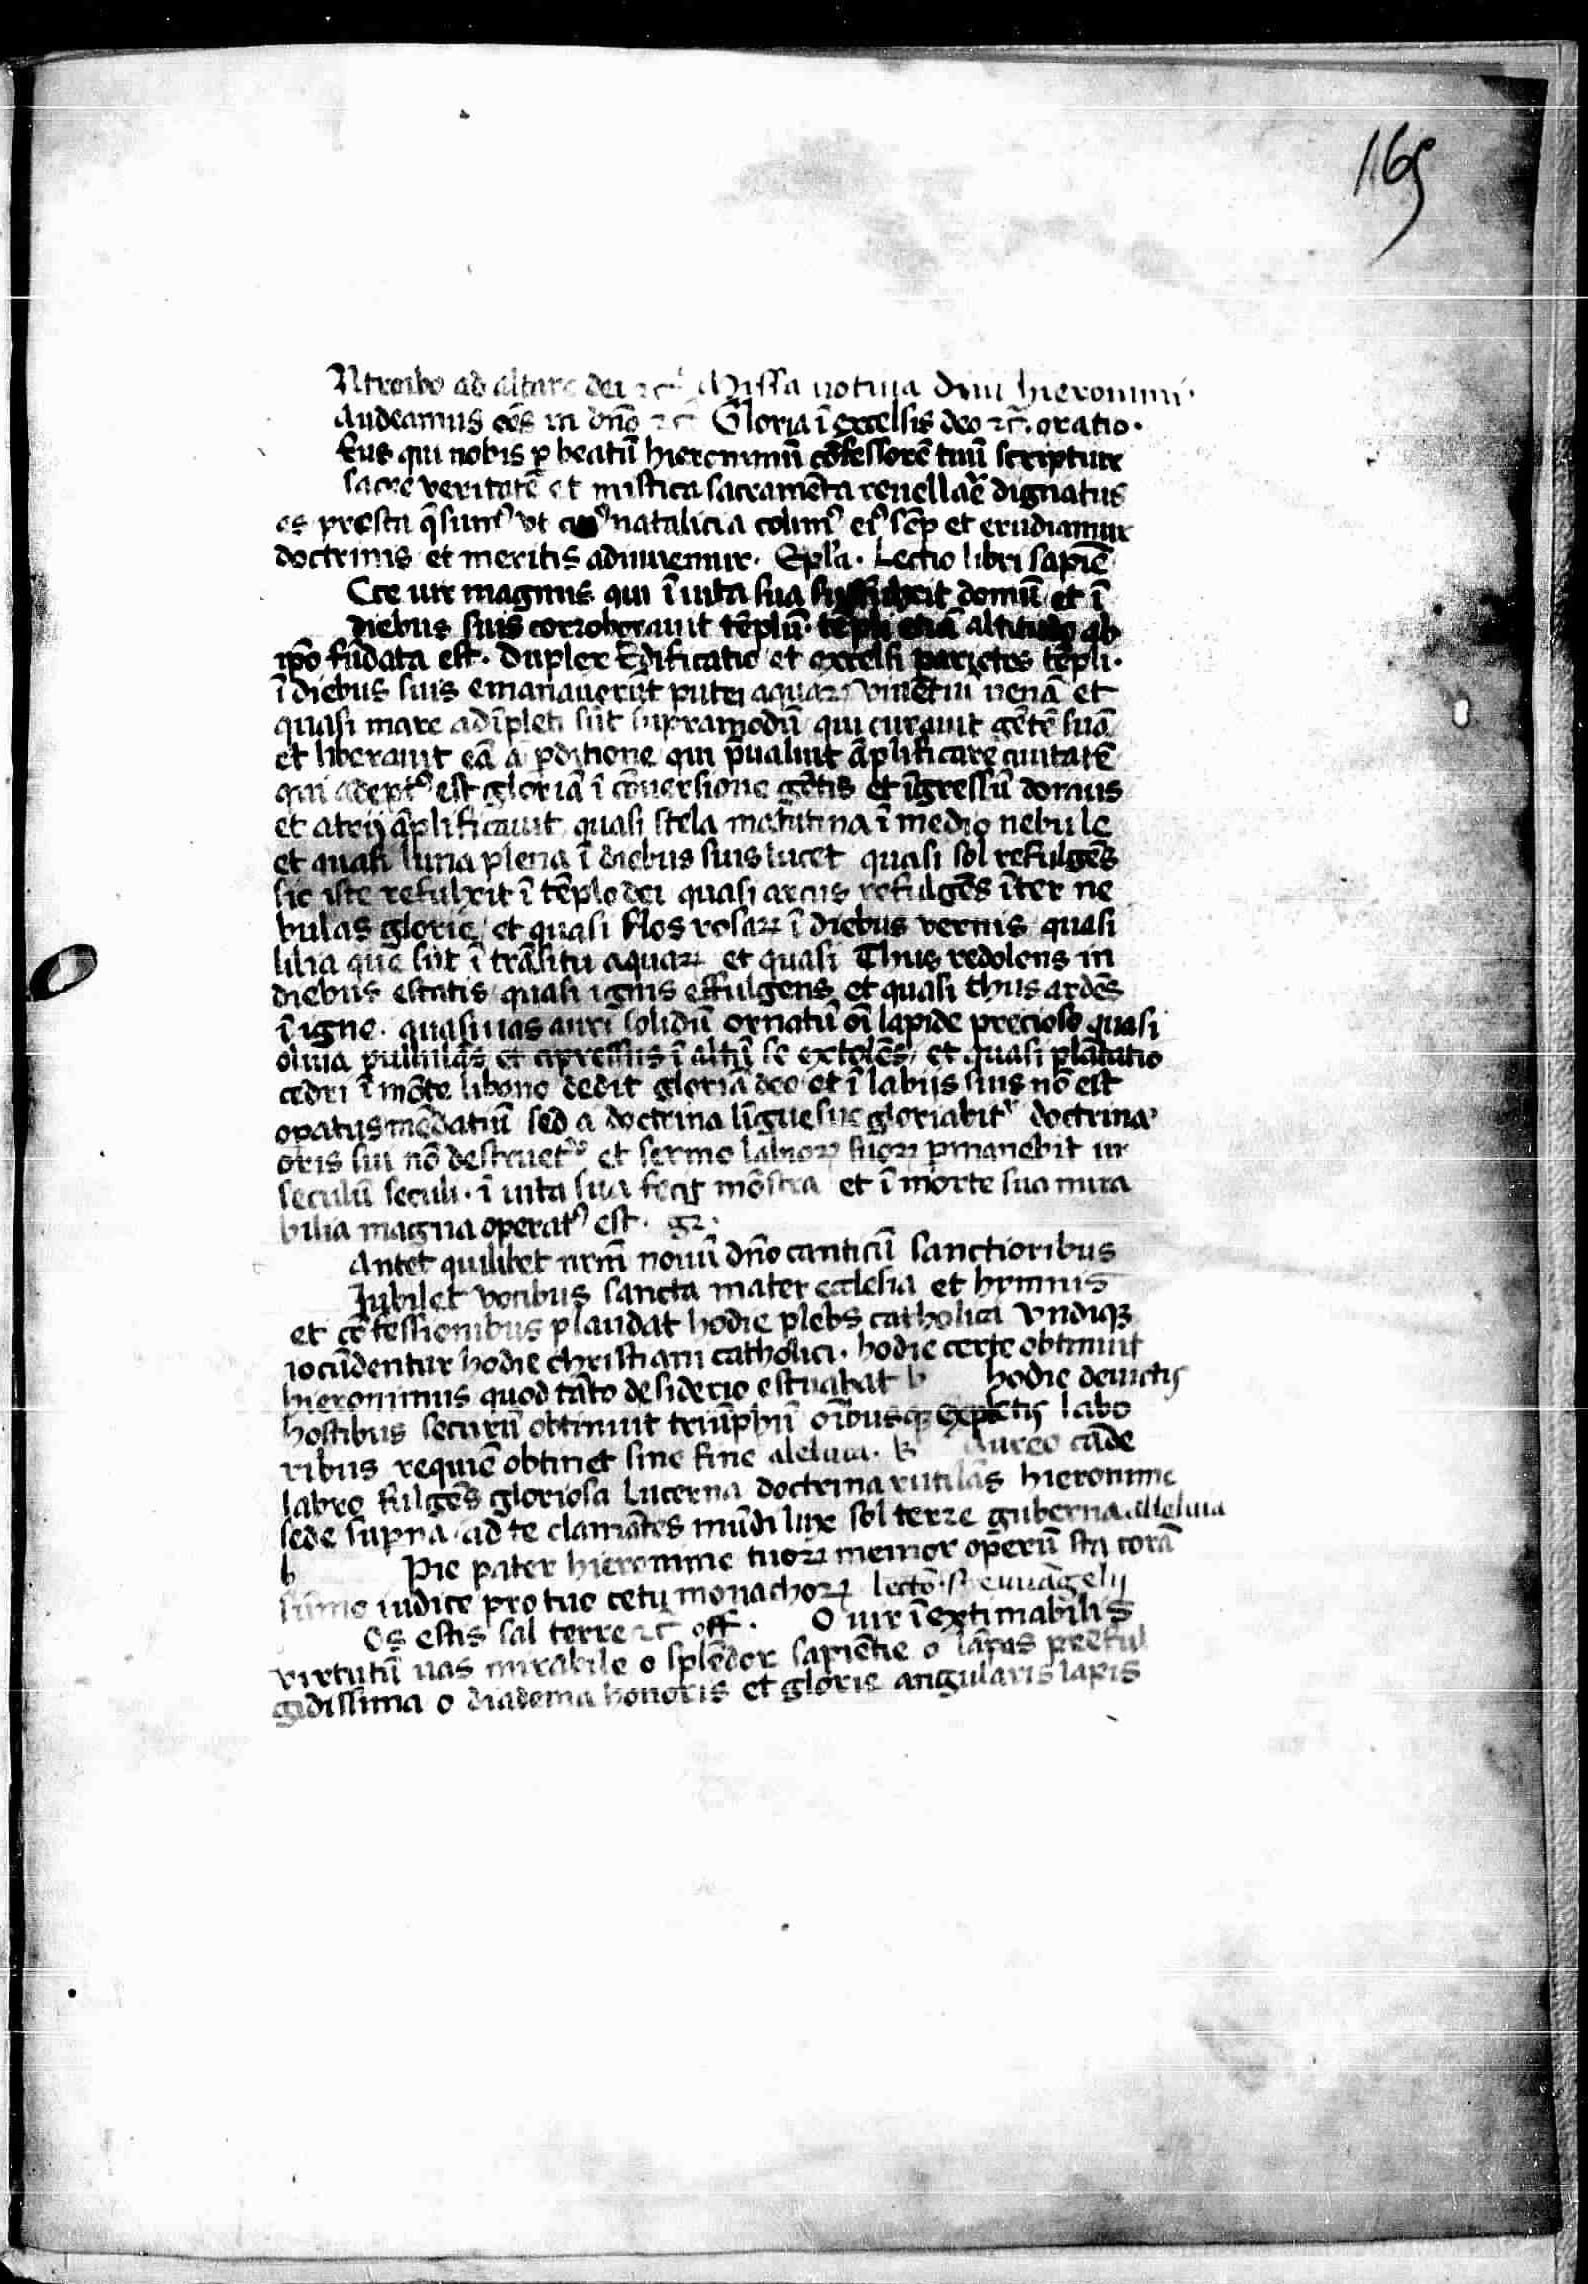 165
Ntroibo ad altare dei ⁊c̃ Missa votiua diui hieronimi·
audeamus oẽs in dño ⁊c̃ Gloria ĩ excelsis deo ⁊c̃. oratio·
Eus qui nobis p beatũ hieronimũ cõfessorẽ tuũ scripture
sacre veritatẽ et mistica sacramẽta reuellãe dignatus
es presta q̃sumꝰ vt natalicia colimꝰ eiꝰ sẽp et erudiamur
doctrinis et meritis adiuuemur· Epl̃a· Lectio libri sapiẽ
Cce uir magnus qui ĩ uita sua domũ et ĩ
diebus suis corroborauit tẽplũ· tẽpli etiã altitudo ab
ip̃o fũdata est· Duplex Edificatio et excelsi parietes tẽpli·
ĩ diebus suis emanauerũt putei aquaꝝ venã et
quasi mare adĩpleti sũt supramodũ qui curauit gẽtẽ suã
et liberauit eã a pditione qui p̃ualuit ãplificare ciuitatẽ
qui adeptꝰ est gloriã ĩ cõuersione gẽtis et ĩgressũ domus
et atrij ãplificauit quasi stela matutina ĩ medio nebule
et quasi luna plena ĩ diebus suis lucet quasi sol refulgẽs
sic iste refulxit ĩ tẽplo dei quasi arcus refulgẽs ĩter ne
bulas glorie et quasi flos rosaꝝ ĩ diebus vernis quasi
lilia que sũt ĩ trãsitu aquaꝝ et quasi Thus redolens in
diebus estatis quasi ignis effulgens et quasi thus ardẽs
ĩ igne· quasi uas auri solidũ ornatũ oĩ lapide precioso quasi
oliua pululãs et cipressus ĩ altũ se extolẽs et quasi plãtatio
cedri ĩ mõte libano dedit gloriã deo et ĩ labijs suis nõ est
opatus mẽdatiũ sed a doctrina lĩgue sue gloriabitᷣ doctrina
oris sui nõ destruetᷣ et sermo labioꝝ suoꝝ pmanebit in
seculũ seculi· ĩ uita sua fecit mõstra et ĩ morte sua mira
bilia magna operatꝰ est· gꝛ·
Antet quilibet nr̃m nouũ dño canticũ sanctioribus
Jubilet vocibus sancta mater ecclesia et hymnis
et cõfessionibus plaudat hodie plebs catholica Vndiqꝫ
iocũdentur hodie christiani catholici· hodie certe obtinuit
hieronimus quod tãto desiderio estuabat ꝟ hodie deuictis
hostibus securũ obtinuit triũphũ oĩbusqꝫ expletis labo
ribus requiẽ obtinet sine fine aleluia· ꝟ Aureo cãde
labro fulgẽs gloriosa lucerna doctrina rutilãs hieronime
sede supna ad te clamãtes mũdi lux sol terre guberna alleluia
ꝟ Pie pater hieronime tuoꝝ memor operũ sta corã
sũmo iudice pro tuo cetu monachoꝝ lectõ· euuãgelij
Os estis sal terre ⁊c̃ off· O uir ĩextimabilis
virtutũ uas mirabile o splẽdor sapiẽtie o lãpas preful
gidissima o diadema honoris et glorie angularis lapis